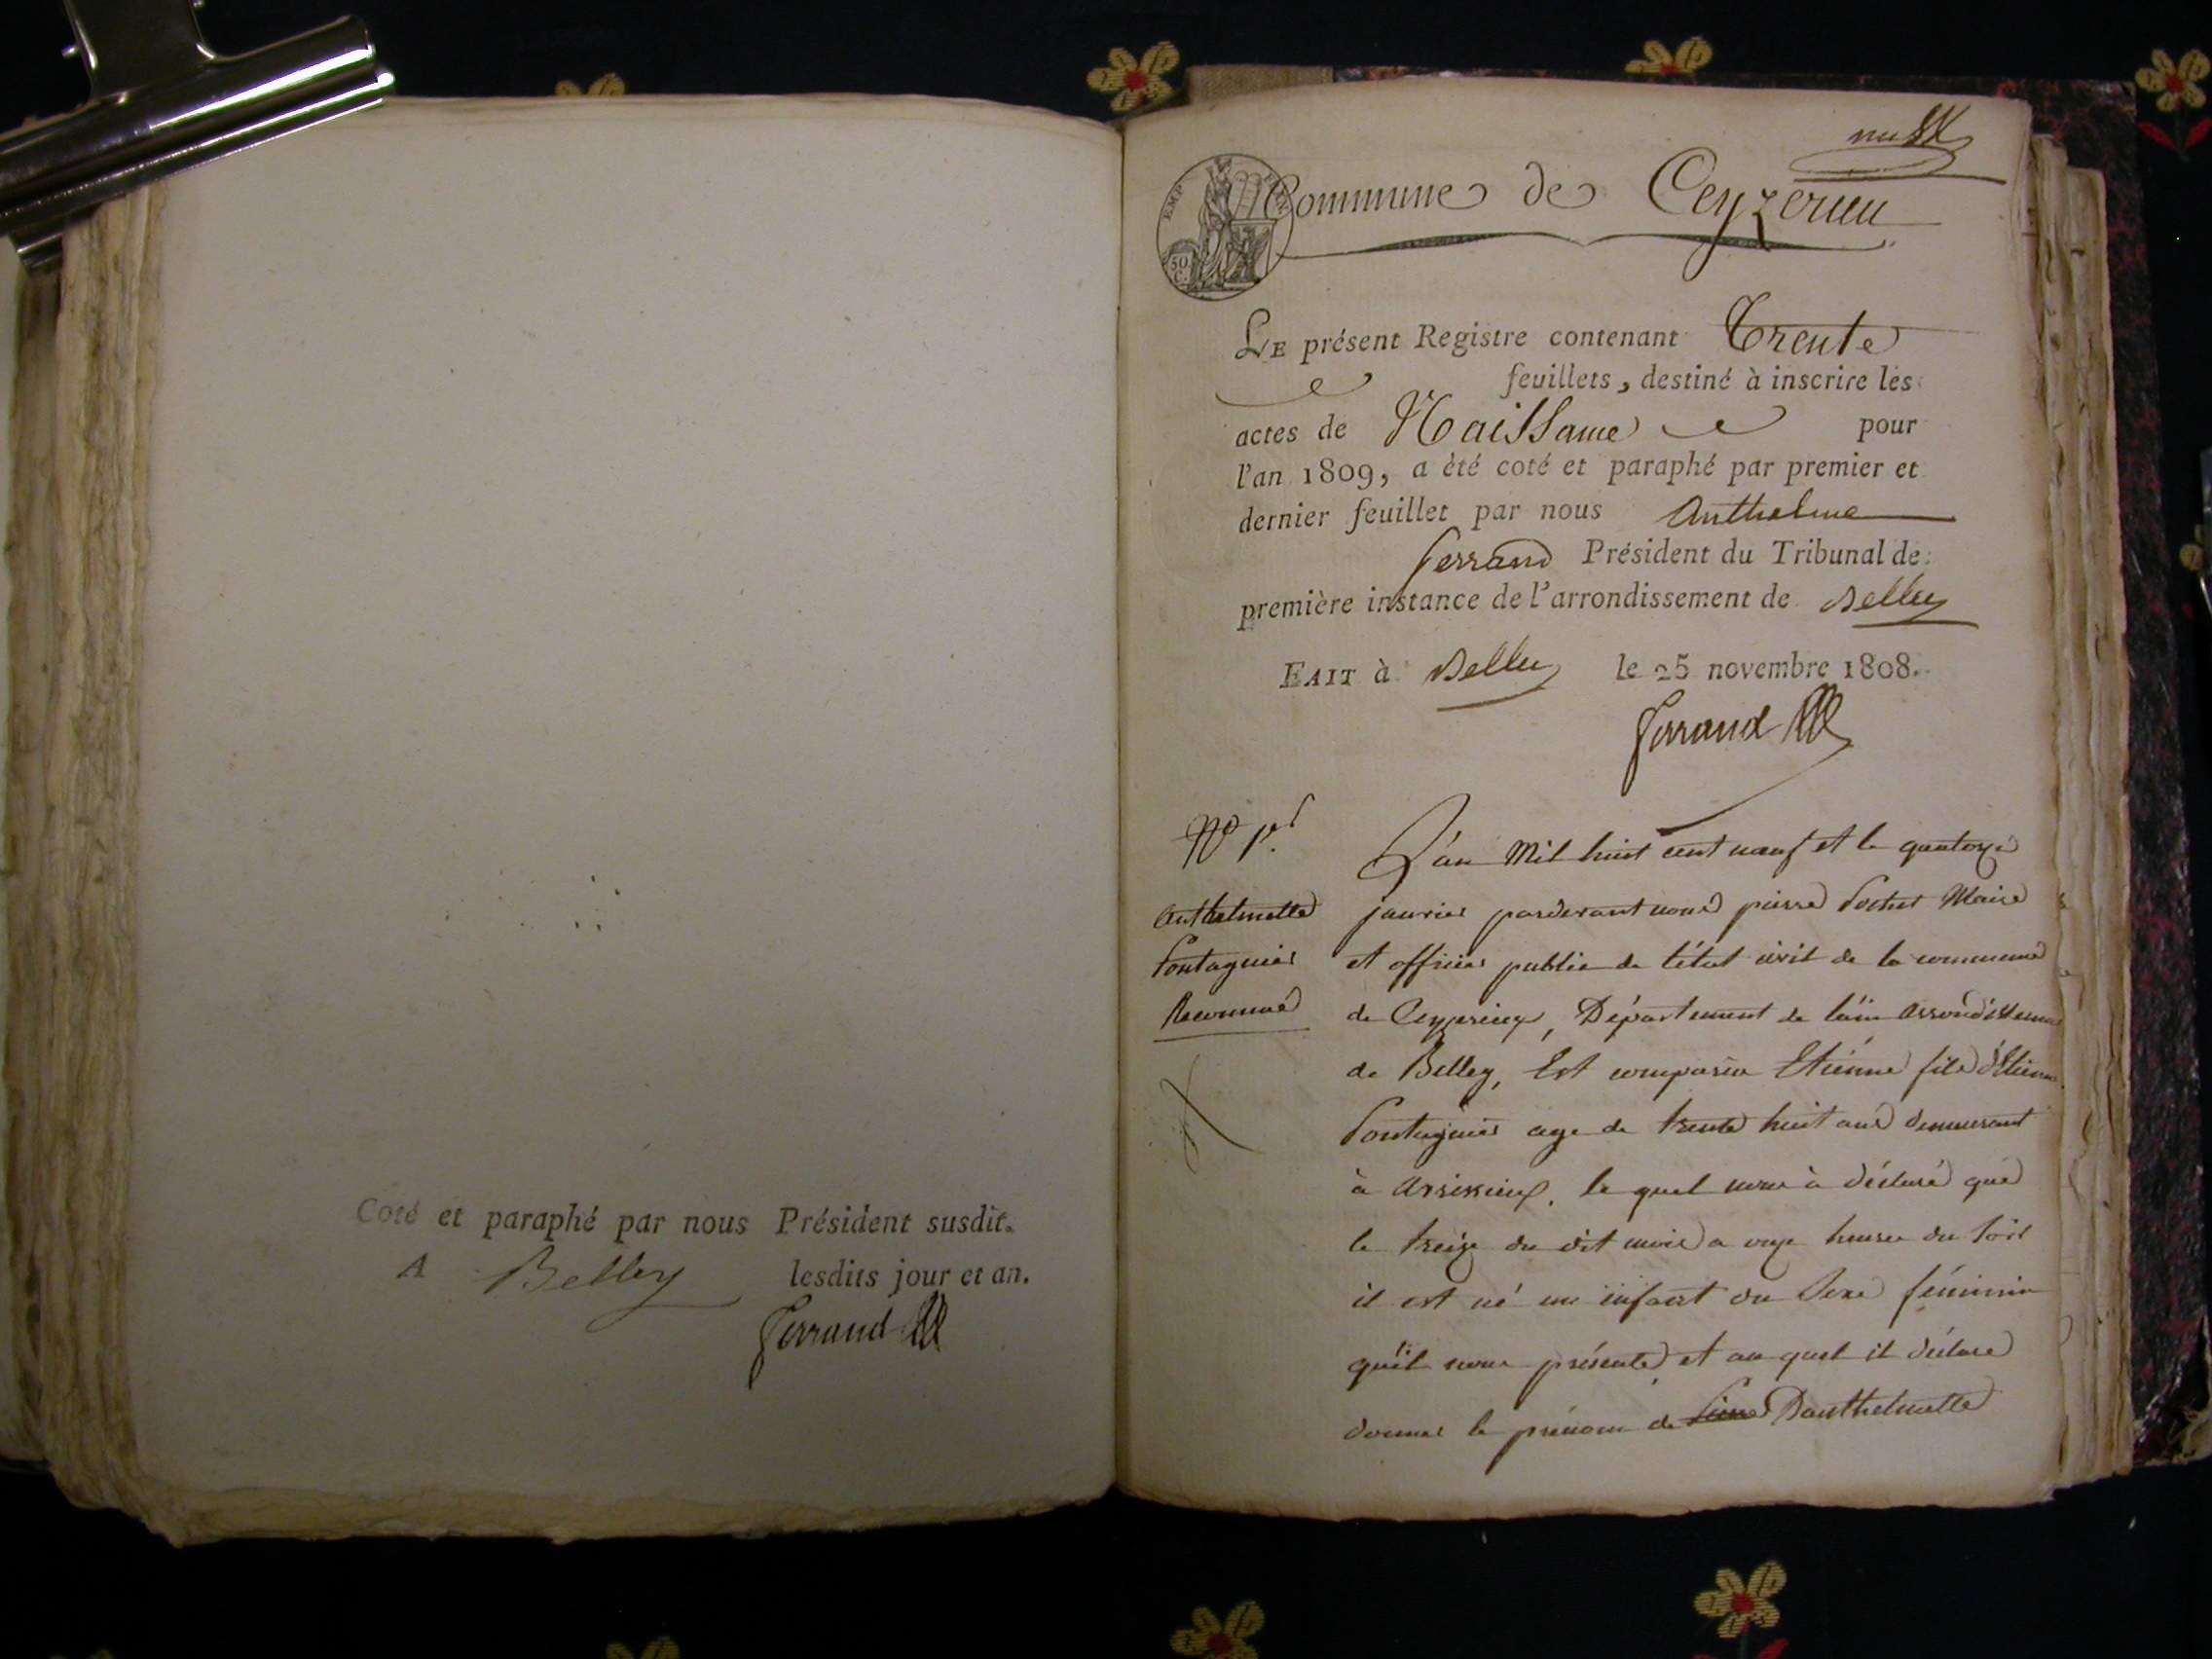 Coté et paraphé par nous Président susdit.
A Belley lesdits jour et an.
Ferrand
EMP
50
C.
Commune de Ceyzerieu
LE présent Registre contenant Trente
feuillets, destiné à inscrire les
actes de Naissance pour
l'an 1809, a été coté et paraphé par premier et
dernier feuillet par nous Anthelme
Ferrand Président du Tribunal de
première instance de l'arrondissement de Belley
FAIT à Belley le 25 novembre 1808.
Ferrand
No 1er
Anthelmette
Pontagnier
L'an Mil huit cent neuf et le quatorze
janvier pardevant nous pierre Maire
et officier public de l'état civil de la commune
de Ceyzerieux, Département de l'ain arrondissement
de Belley, Est comparu Etiénne fils d'Etienne
Pontagnier age de trente huit ans demeurant
à le quel nous à déclaré que
le treize du dit mois a onze heures du soir
il est né un enfant du sexe féminin
qu'il nous présente, et au quel il déclare
donner le prénom de Danthelmette